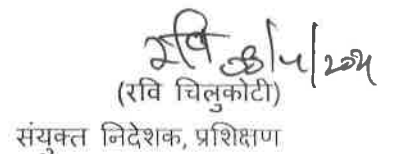 रवि
(रवि चिलुकोटी)
संयुक्त निदेशक, प्रशिक्षण